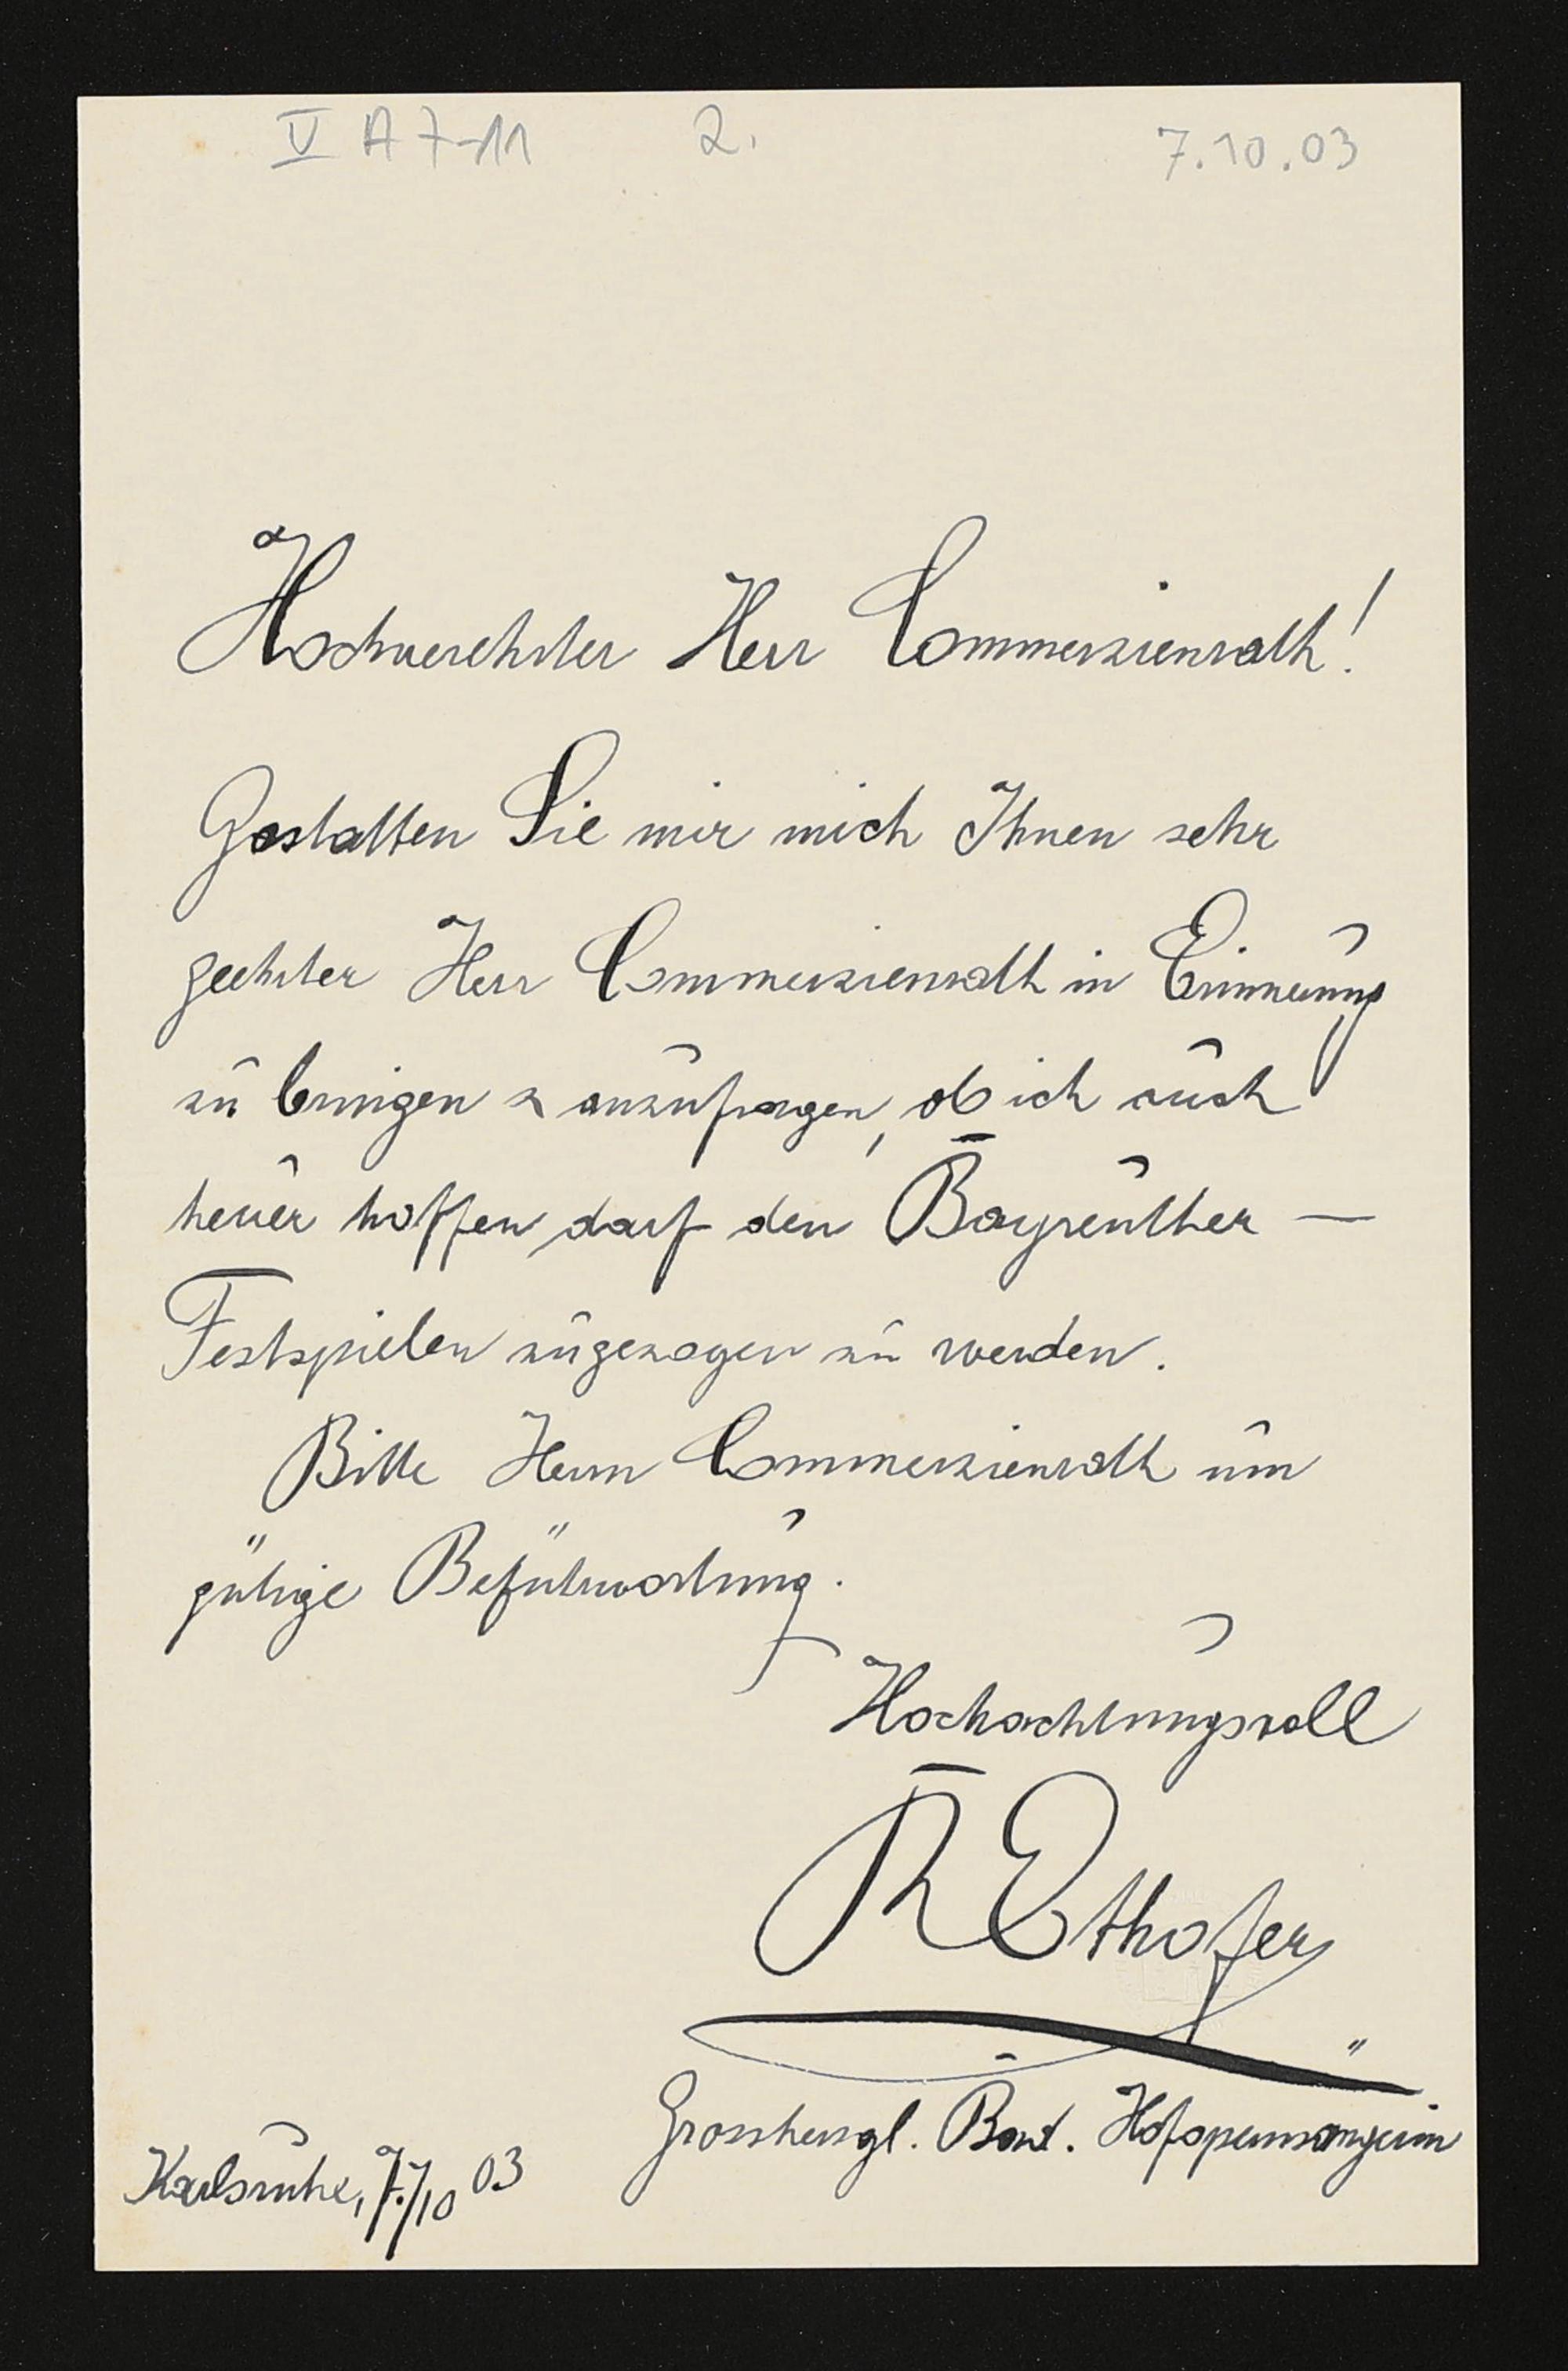 V A 7-11 2. 7.10.03
Hochverehrter Herr Commerzienrath!
Gestatten Sie mir mich Ihnen sehr
geehrter Herr Commerzienrath in Erinnerung
zu bringen & anzufragen, ob ich auch
heuer hoffen darf den Bayreuther —
Festspielen zugezogen zu werden.
Bitte Herrn Commerzienrath um
gütige Befürwortung.
Hochachtungsvoll
R Ethofer
Grossherzgl. Bad. Hofopernsängerin
Karlsruhe, 7./10 03